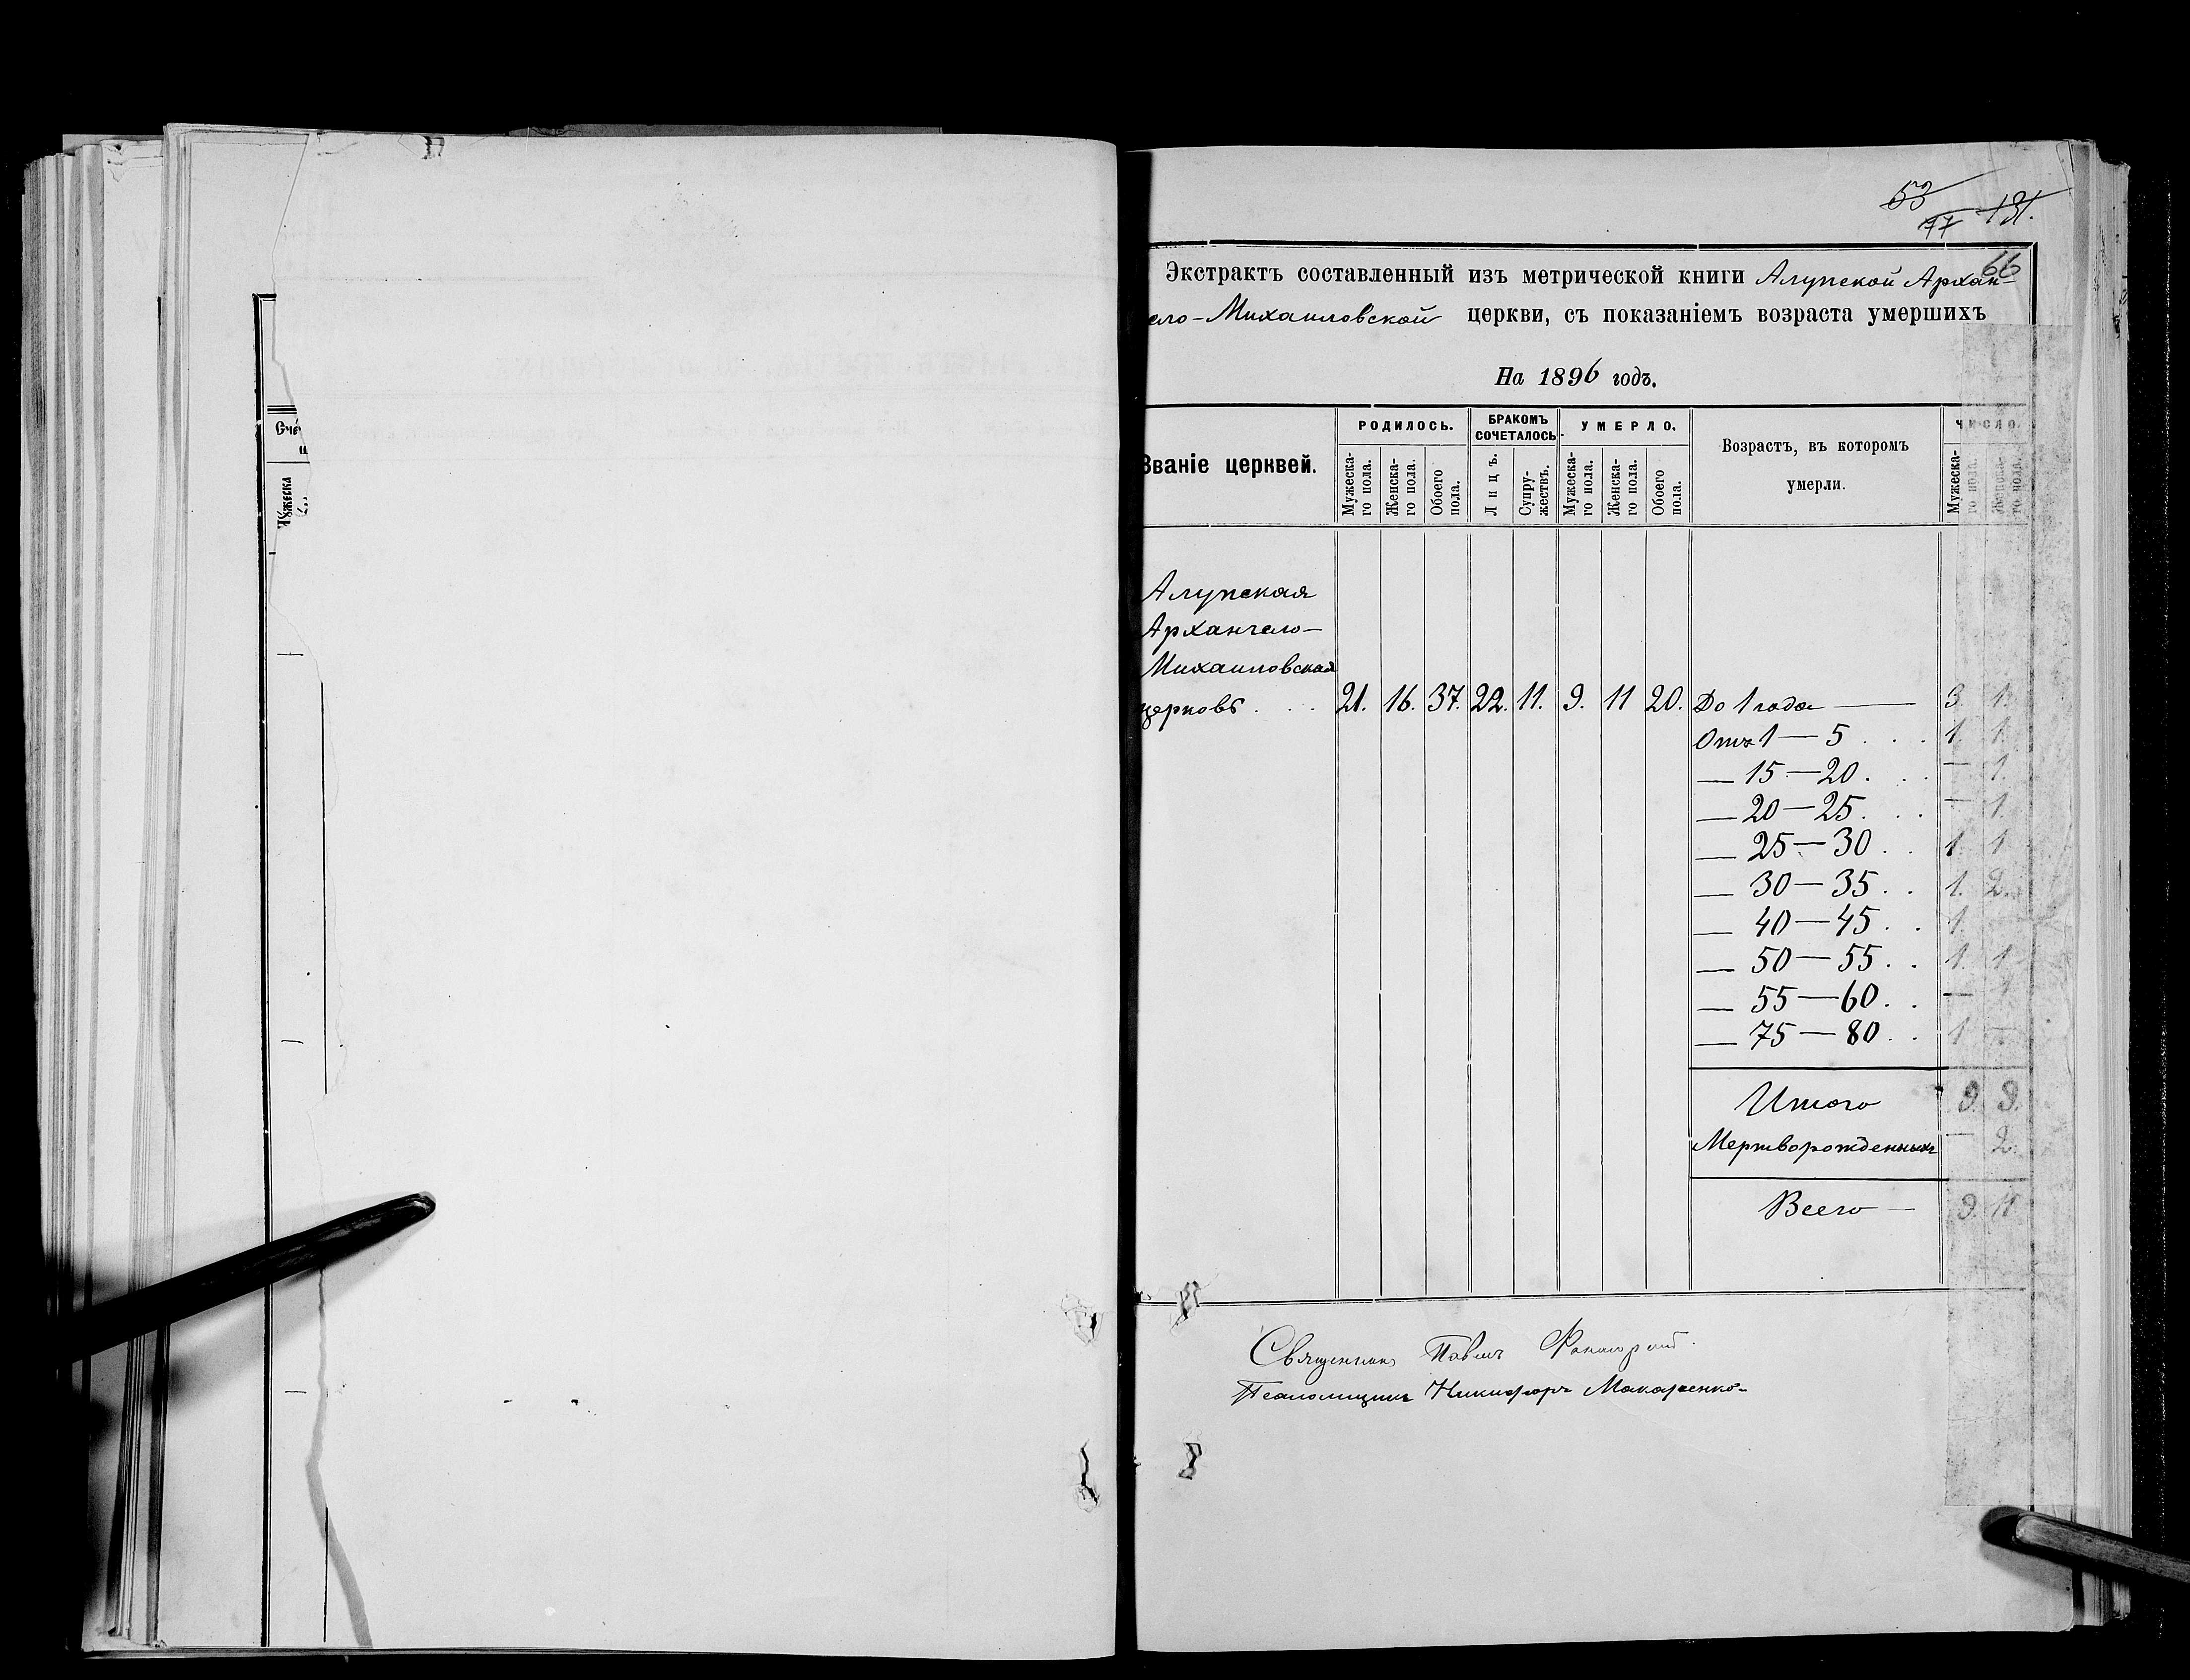 Счё
ш
Мужеска
53
77 131.
66
Экстрактъ составленный изъ метрической книги Алупской Архан-
гело-Михаиловской церкви, съ показаніемъ возраста умершихъ
На 1896 годъ.
Званіе церквей.
РОДИЛОСЬ.
БРАКОМЪ СОЧЕТАЛОСЬ.
УМЕРЛО.
Возрастъ, въ которомъ
умерли.
ЧИСЛО.
Мужеска-го пола.
Женска-го пола.
Обоего пола.
Лицъ.
Супру-жествъ.
Мужеска-го пола.
Женска-го пола.
Обоего пола.
Мужеска-го пола.
Женска-го пола.
Алупская
Архангело-
Михаиловская
церковь . . . 21. 16. 37. 22. 11. 9. 11 20. До 1 года — 3. 1.
Отъ 1 — 5 . . . 1. 1.
— 15 — 20 . . . — 1.
— 20 — 25 . . . — 1.
— 25 — 30 . . 1. 1
— 30 — 35 . . 1. 2.
— 40 — 45 . . 1.
— 50 — 55 . . 1. 1
— 55 — 60 . . — 1
— 75 — 80 . . 1 —
Итого 9. 9.
Мертворожденныхъ — 2.
Всего — 9. 11
Священникъ Павелъ
Псаломщикъ Никифоръ Макаренко